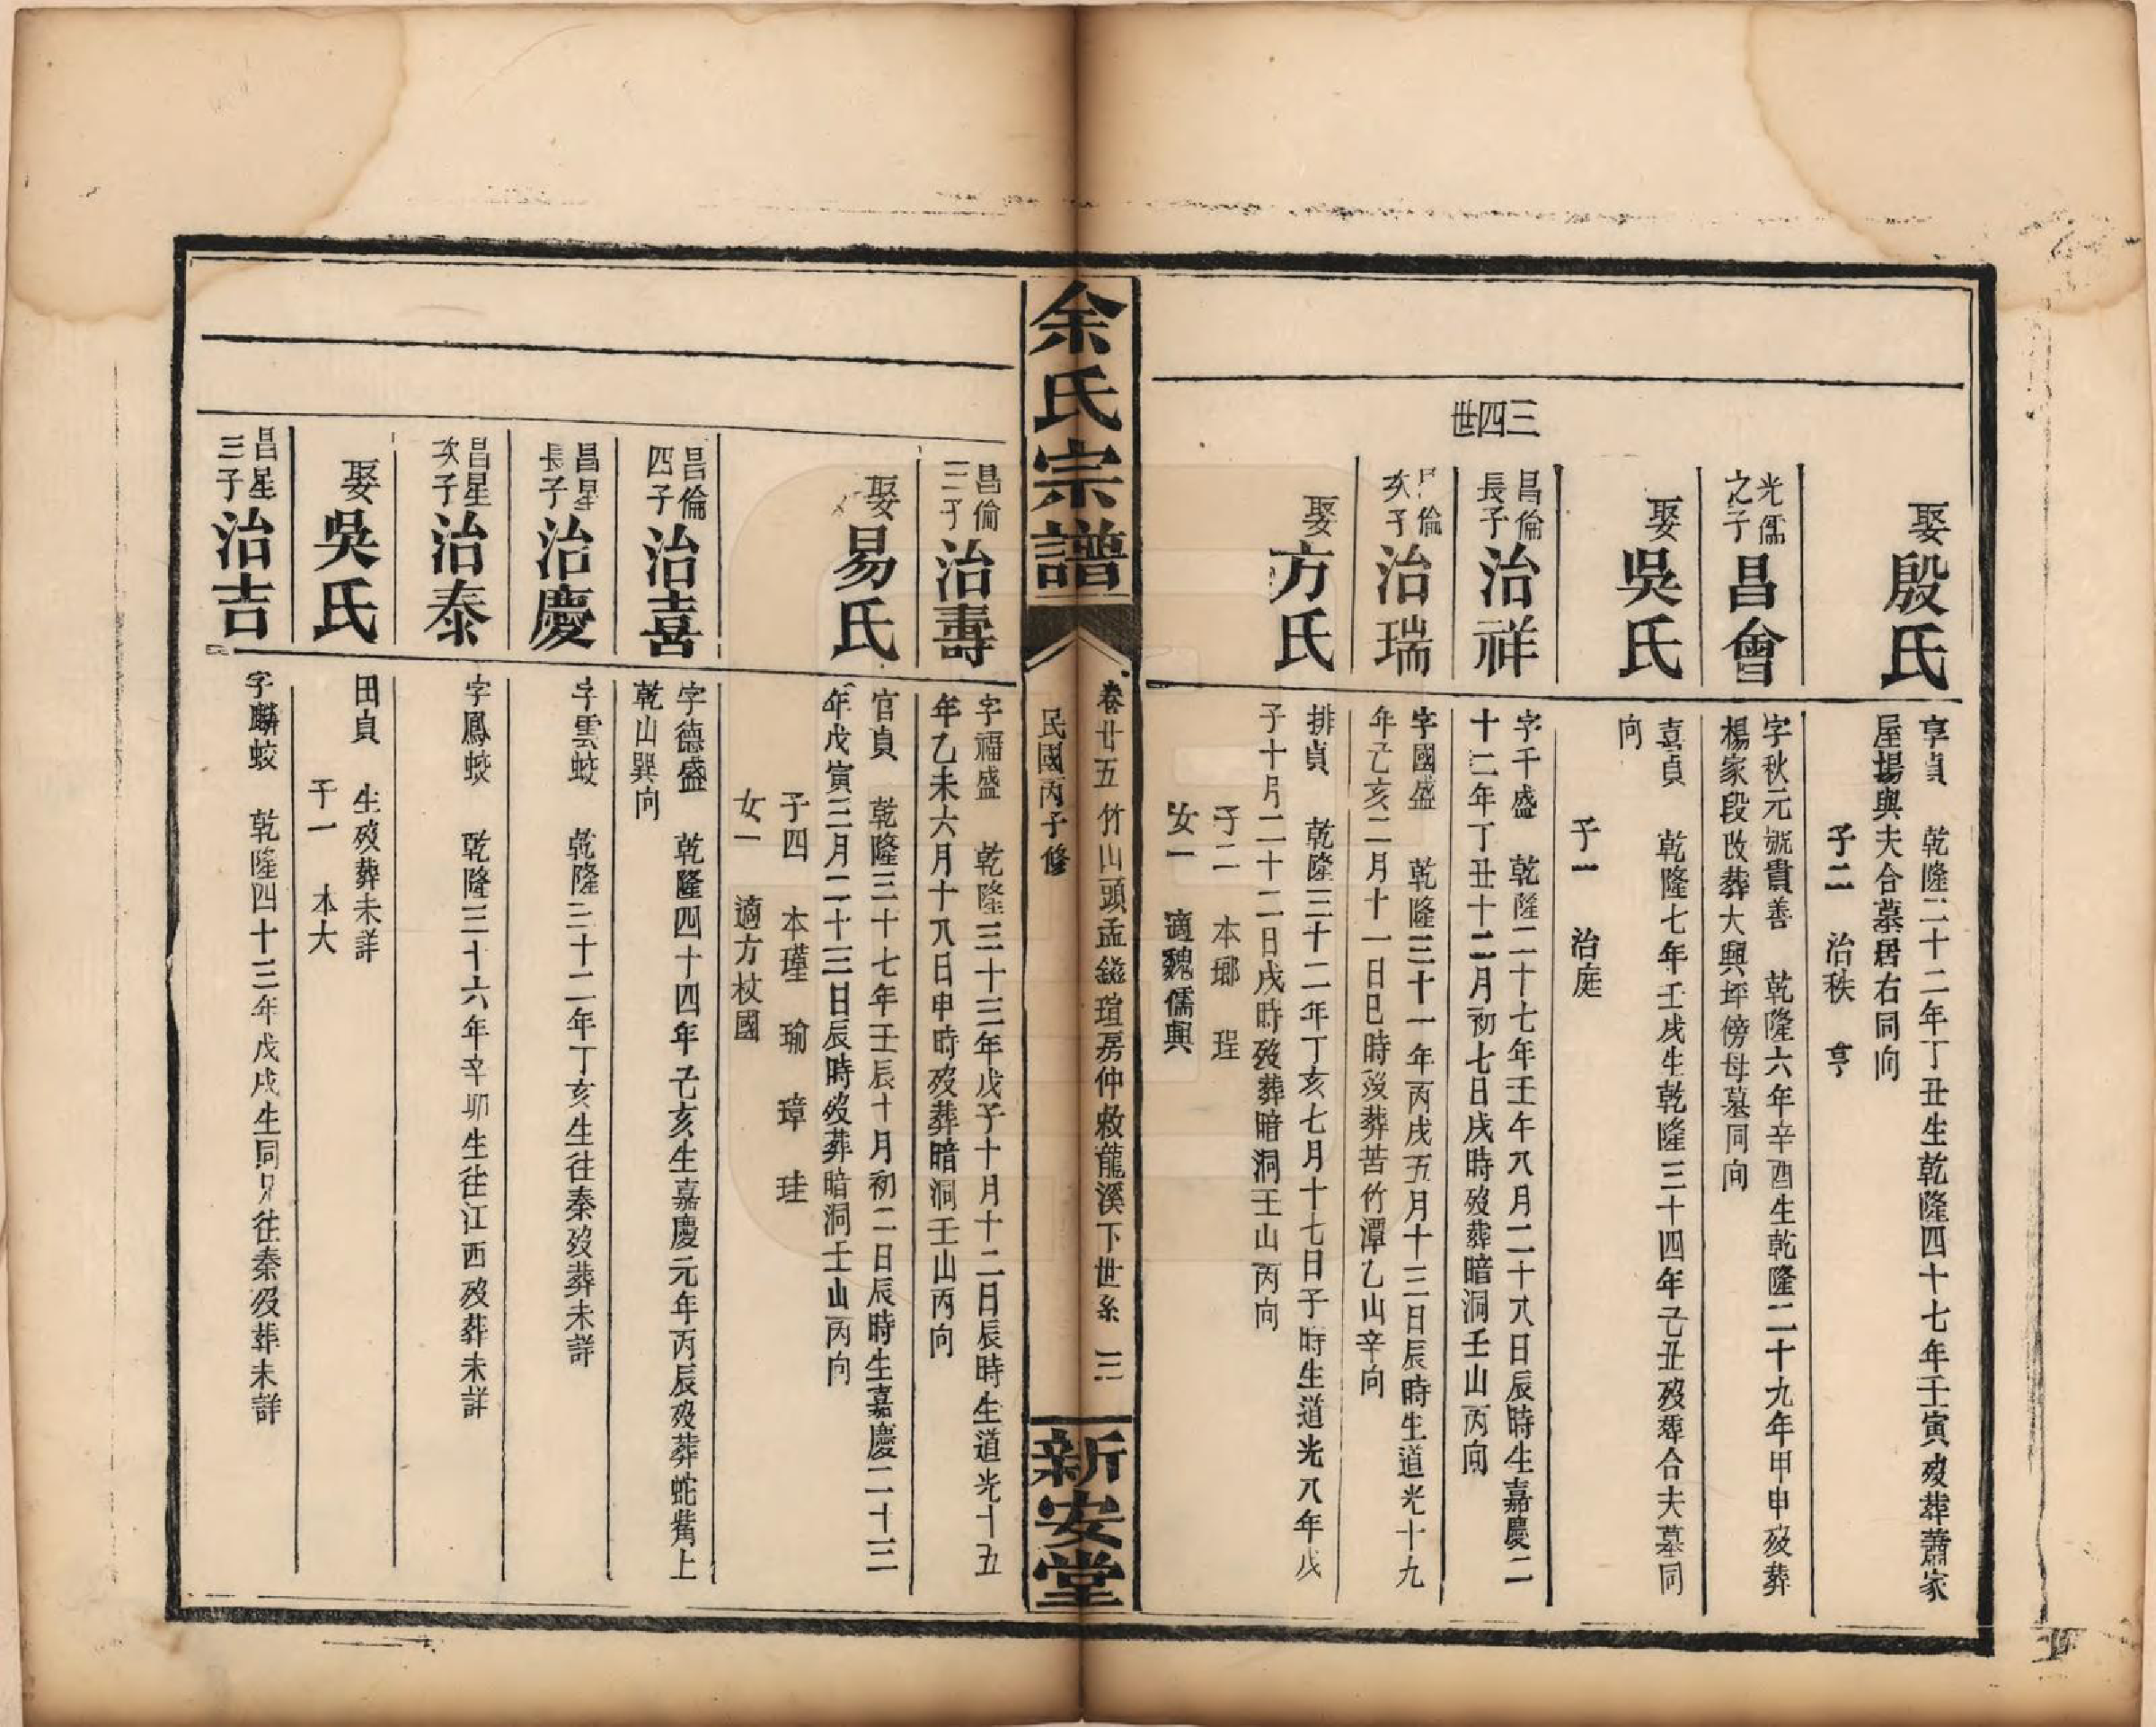 娶殷氏
享貞　乾隆二十二年丁丑生乾隆四十七年壬寅歿葬蕭家
屋場與夫合墓居右同向
子二　治秩　亨
光儒
之子
昌會
字秋元號貴善　乾隆六年辛酉生乾隆二十九年甲申歿葬
楊家段改葬大興坪傍母墓同向
娶吳氏
喜貞　乾隆七年壬戌生乾隆三十四年己丑歿葬合夫墓同
向
子一　治庭
三四世
昌倫
長子
治祥
字千盛　乾隆二十七年壬午八月二十八日辰時生嘉慶二
十二年丁丑十二月初七日戌時歿葬暗洞壬山丙向
昌倫
次子
治瑞
字國盛　乾隆三十一年丙戌五月十三日辰時生道光十九
年乙亥二月十一日巳時歿葬苦竹潭乙山辛向
娶方氏
排貞　乾隆三十二年丁亥七月十七日子時生道光八年戊
子十月二十二日戌時歿葬暗洞壬山丙向
子二　本瑯　珵
女一　適魏儒興
余氏宗譜
卷廿五　竹山頭孟鎰瑄房仲敕龍溪下世系　三
民國丙子修
新安堂
昌倫
三子
治壽
字福盛　乾隆三十三年戊子十月十二日辰時生道光十五
年乙未六月十八日申時歿葬暗洞壬山丙向
娶易氏
官貞　乾隆三十七年壬辰十月初二日辰時生嘉慶二十三
年戊寅三月二十三日辰時歿葬暗洞壬山丙向
子四　本瑾　瑜　璋　珪
女一　適方杖國
昌倫
四子
治喜
字德盛　乾隆四十四年己亥生嘉慶元年丙辰歿葬蛇嘴上
乾山巽向
昌星
長子
治慶
字雲蛟　乾隆三十二年丁亥生往秦歿葬未詳
昌星
次子
治泰
字鳳蛟　乾隆三十六年辛卯生往江西歿葬未詳
娶吳氏
田貞　生歿葬未詳
子一　本大
昌星
三子
治吉
字麟蛟　乾隆四十三年戊戌生同兄往秦歿葬未詳